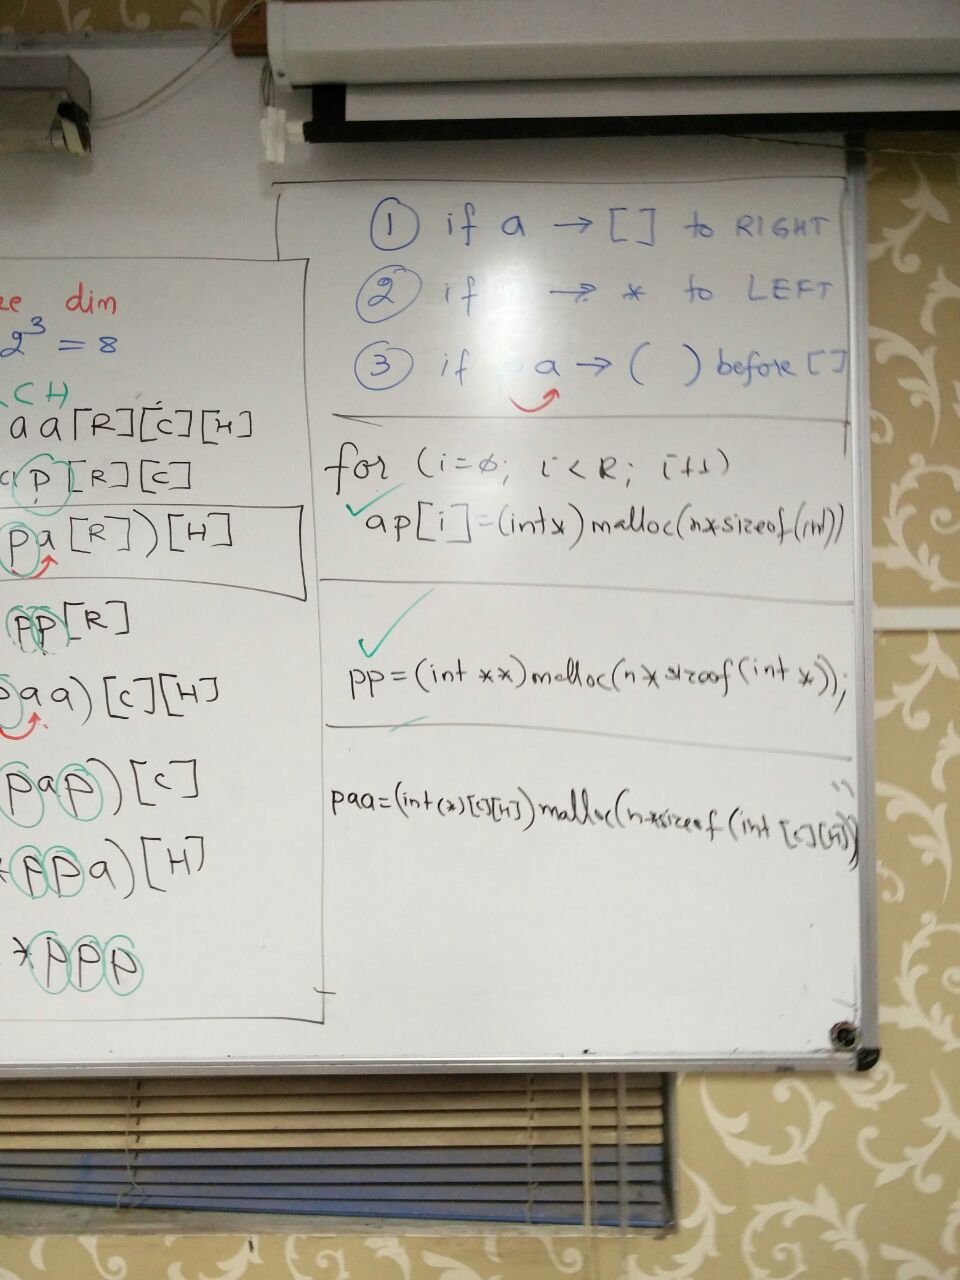 ze dim
2³ = 8
CH
aa[R][C][H]
p[R][C]
pa[R])[H]
pp[R]
aa)[C][H]
pap)[C]
*ppa)[H]
*ppp
① if a → [] to RIGHT
② if → * to LEFT
③ if a → ( ) before []
for (i=ø; i<R; i++)
ap[i]=(int*)malloc(n*sizeof(int))
pp=(int **)malloc(n*sizeof(int *));
paa=(int(*)[C][H])malloc(n*sizeof(int [C][H]))